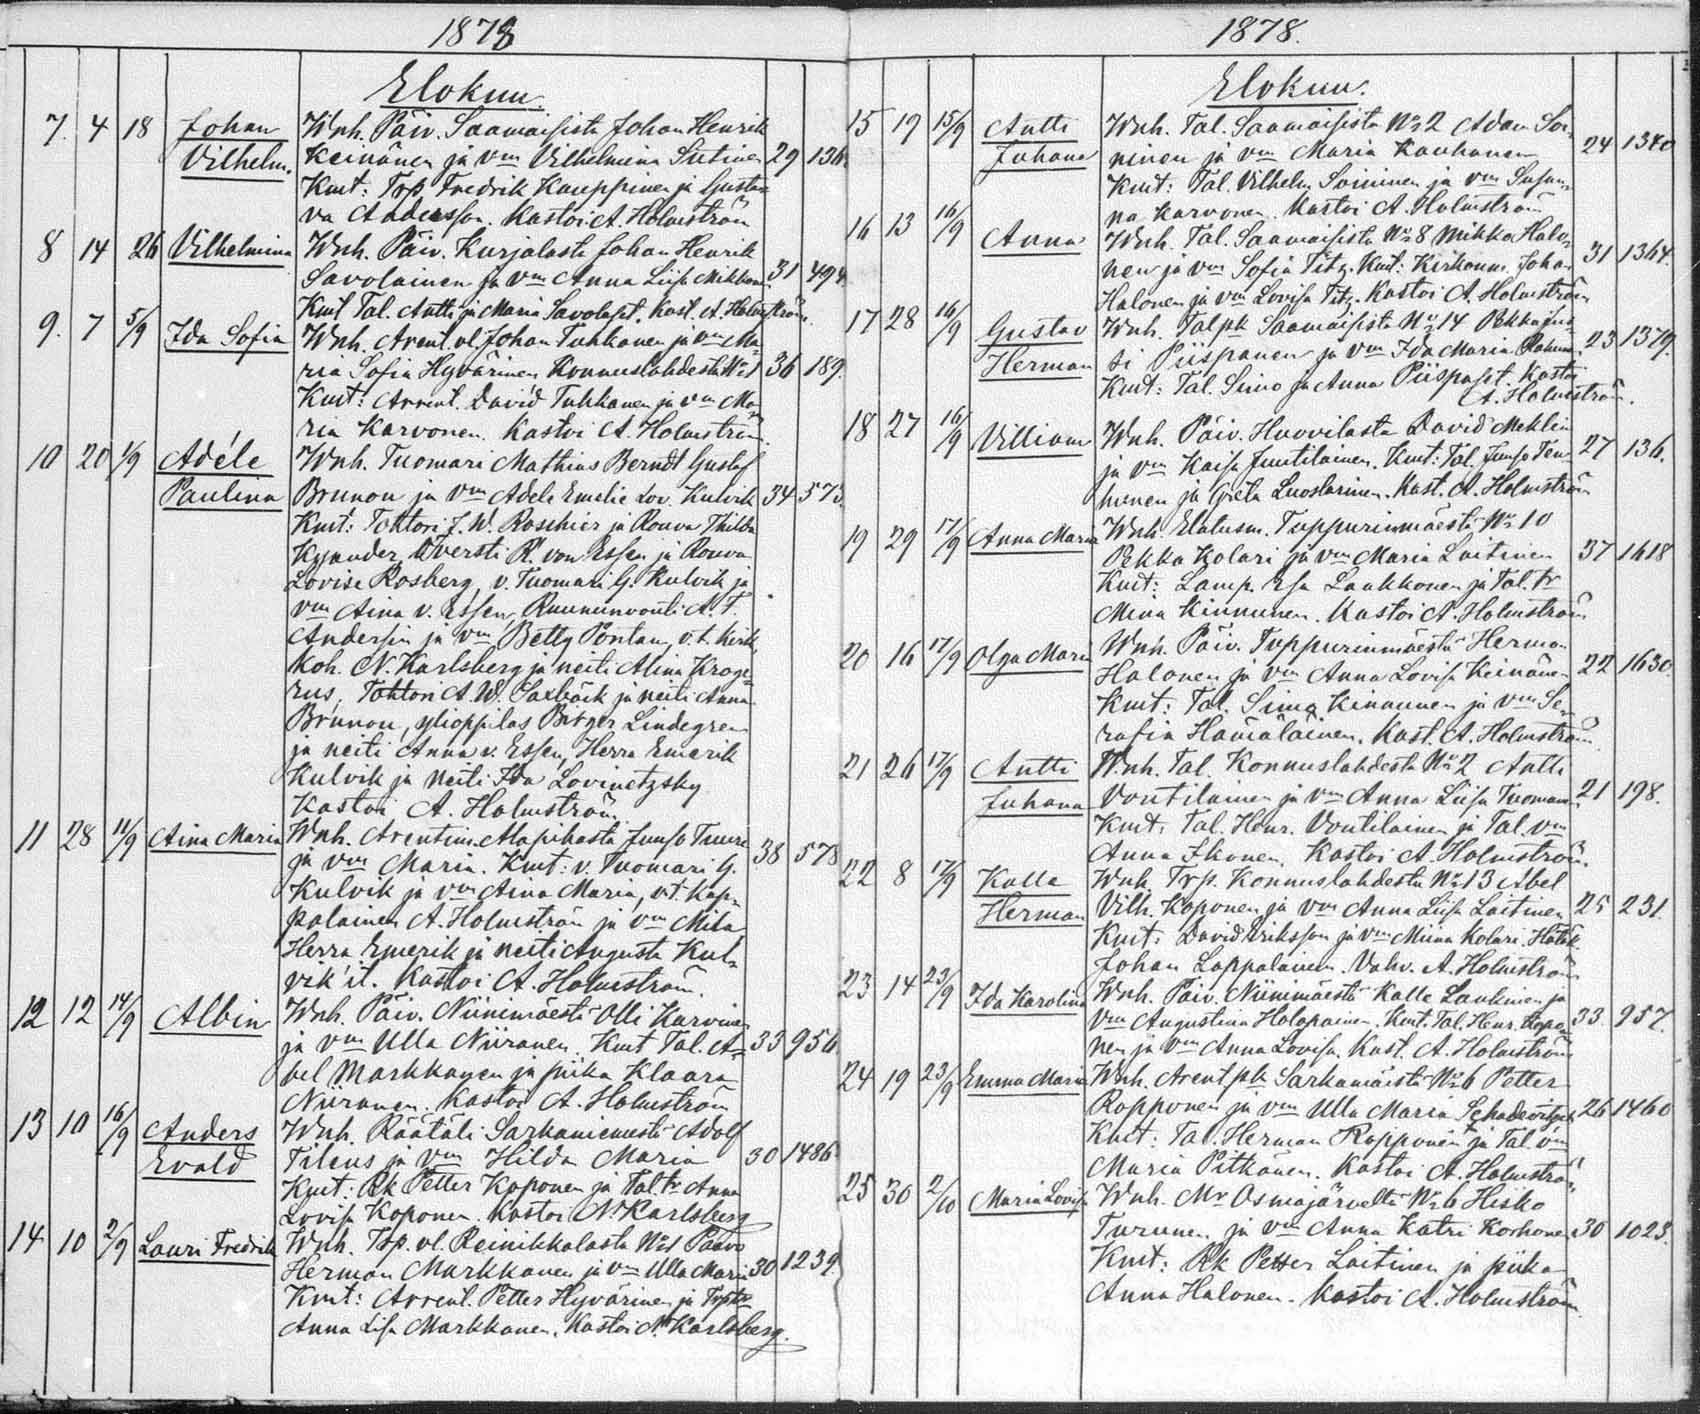 1878
Elokuu.
7. 4 18 Johan Wnh. Päiv. Saamaisista Johan Henrik
Vilhelm. Keinänen ja vm Vilhelmina Sutinen 29 136
Kmt: Trp Fredrik Kauppinen ja Gusta
va Andersson. Kastoi A. Holmström
8 14 26 Vilhelmina Wnh. Päiv. Kurjalasta Johan Henrik
Savolainen ja vm Anna Liisa Mikkon. 31 494
Kmt Tal. Antti ja Maria Savolaset. Kast. A. Holmström.
9. 7 5/9 Ida Sofia Wnh. Arent. vl. Johan Tuhkanen ja vm Ma-
ria Sofia Hyvärinen Konnuslahdesta No 1 36 189.
Kmt: Arrent. David Tuhkanen ja vm Ma-
ria Karvonen. Kastoi A. Holmström.
10 20 1/9 Adéle Wnh. Tuomari Mathias Berndt Gustaf
Paulina Brunou ja vm Adele Emelie Lov. Kulvik 34 573
Kmt: Tohtori F. W. Roschier ja Rouva Thilda
Kyander, Översti R. von Essen ja Rouva
Lovise Rosberg, v. Tuomari G. Kulvik ja
vm Aina v. Essen, Ruununvouti A. F.
Andersin ja vm Betty Pontan, v.t. Kirk.
koh. N. Karlsberg ja neiti Alina Kroge-
rus, Tohtori A. W. Saxbäck ja neiti Anna
Brunou, ylioppilas Birger Lindegren
ja neiti Anna v. Essen, Herra Emerik
Kulvik ja Neiti Ida Lovinetzsky
Kastoi A. Holmström.
11 28 11/9 Aina Maria Wnh. Arentim. Alapihasta Juuso Tuure
ja vm Maria. Kmt: v. Tuomari G. 38 578
Kulvik ja vm Aina Maria, v.t. Kap-
palainen A. Holmström ja vm Mila
Herra Emerik ja neiti Augusta Kul-
vik'it. Kastoi A. Holmström.
12 12 14/9 Albin Wnh. Päiv. Niinimäestä Olli Karvinen
ja vm Ulla Niiranen. Kmt Tal. A- 33 956
bel Markkanen ja piika Klaara
Niiranen. Kastoi A. Holmström
13 10 16/9 Anders Wnh. Räätäli Sarkamäestä Adolf
Evald Tileus ja vm Hilda Maria 30 1486
Kmt: Rk Petter Koponen ja Tal. tr Anna
Lovisa Koponen. Kastoi N. Karlsberg
14 10 2/9 Lauri Fredrik Wnh. Trp. vl. Reinikkalasta No 1 Paavo
Herman Markkanen ja vm Ulla Maria 30 1239.
Kmt: Arrent. Petter Hyvärinen ja Trp tr
Anna Lisa Markkanen. Kastoi N. Karlsberg.
1878.
Elokuu.
15 19 15/9 Antti Wnh. Tal. Saamaisista No 2 Adam Soi-
Juhana ninen ja vm Maria Kauhanen 24 1340
Kmt: Tal. Vilhelm Soininen ja vm Susan-
na Karvonen. Kastoi A. Holmström
16 13 16/9 Anna Wnh. Tal. Saamaisista No 8 Mikko Halo-
nen ja vm Sofia Titz. Kmt: Kirkonm. Johan 31 1364.
Halonen ja vm Lovisa Titz. Kastoi A. Holmström
17 28 16/9 Gustav Wnh. Tal pk Saamaisista No 14 Pekka Jus-
Herman si Piispanen ja vm Ida Maria 23 1379.
Kmt: Tal. Simo ja Anna Piispaset. Kastoi
A. Holmström.
18 27 16/9 Villiam Wnh. Päiv. Huovilasta David Meklin
ja vm Kaisa Juutilainen. Kmt: Tal. Juuso Ten- 27 136.
hunen ja Greta Luostarinen. Kast. A. Holmström
19 29 17/9 Anna Maria Wnh. Elatusm. Tuppurinmäestä No 10
Pekka Kolari ja vm Maria Laitinen 37 1618
Kmt: Lamp. Esa Laukkonen ja Tal. tr
Mena Kinnunen. Kastoi A. Holmström
20 16 17/9 Olga Maria Wnh. Päiv. Tuppurinmäestä Herman
Halonen ja vm Anna Lovisa Keinänen 22 1630.
Kmt: Tal. Simo Kinnunen ja vm Se-
rafia Hämäläinen. Kast. A. Holmström
21 26 17/9 Antti Wnh. Tal. Konnuslahdesta No 2 Antti
Juhana Voutilainen ja vm Anna Liisa Tuomain. 21 198.
Kmt: Tal. Henr. Voutilainen ja Tal. vm
Anna Ikonen. Kastoi A. Holmström.
22 8 17/9 Kalle Wnh. Trp. Konnuslahdesta No 13 Abel
Herman Vilh. Koponen ja vm Anna Liisa Laitinen 25 231.
Kmt: David Eriksson ja vm Miina Kolari. Hätäk.
Johan Lappalainen. Vahv. A. Holmström
23 14 23/9 Ida Karolina Wnh. Päiv. Niinimäestä Kalle Laukinen ja
vm Augustina Holopainen. Kmt. Tal. Henr. Kopo- 33 957.
nen ja vm Anna Lovisa. Kast. A. Holmström
24 19 23/9 Emma Maria Wnh. Arent pk Sarkamäestä No 6 Petter
Ropponen ja vm Ulla Maria 26 1460
Kmt: Tal. Herman Ropponen ja Tal. vm
Maria Pitkänen. Kastoi A. Holmström
25 30 2/10 Maria Lovisa Wnh. Mr Osmajärveltä No 6 Heikko
Turunen ja vm Anna Katri Korhonen 30 1023.
Kmt: Rk Petter Laitinen ja piika
Anna Halonen. Kastoi A. Holmström